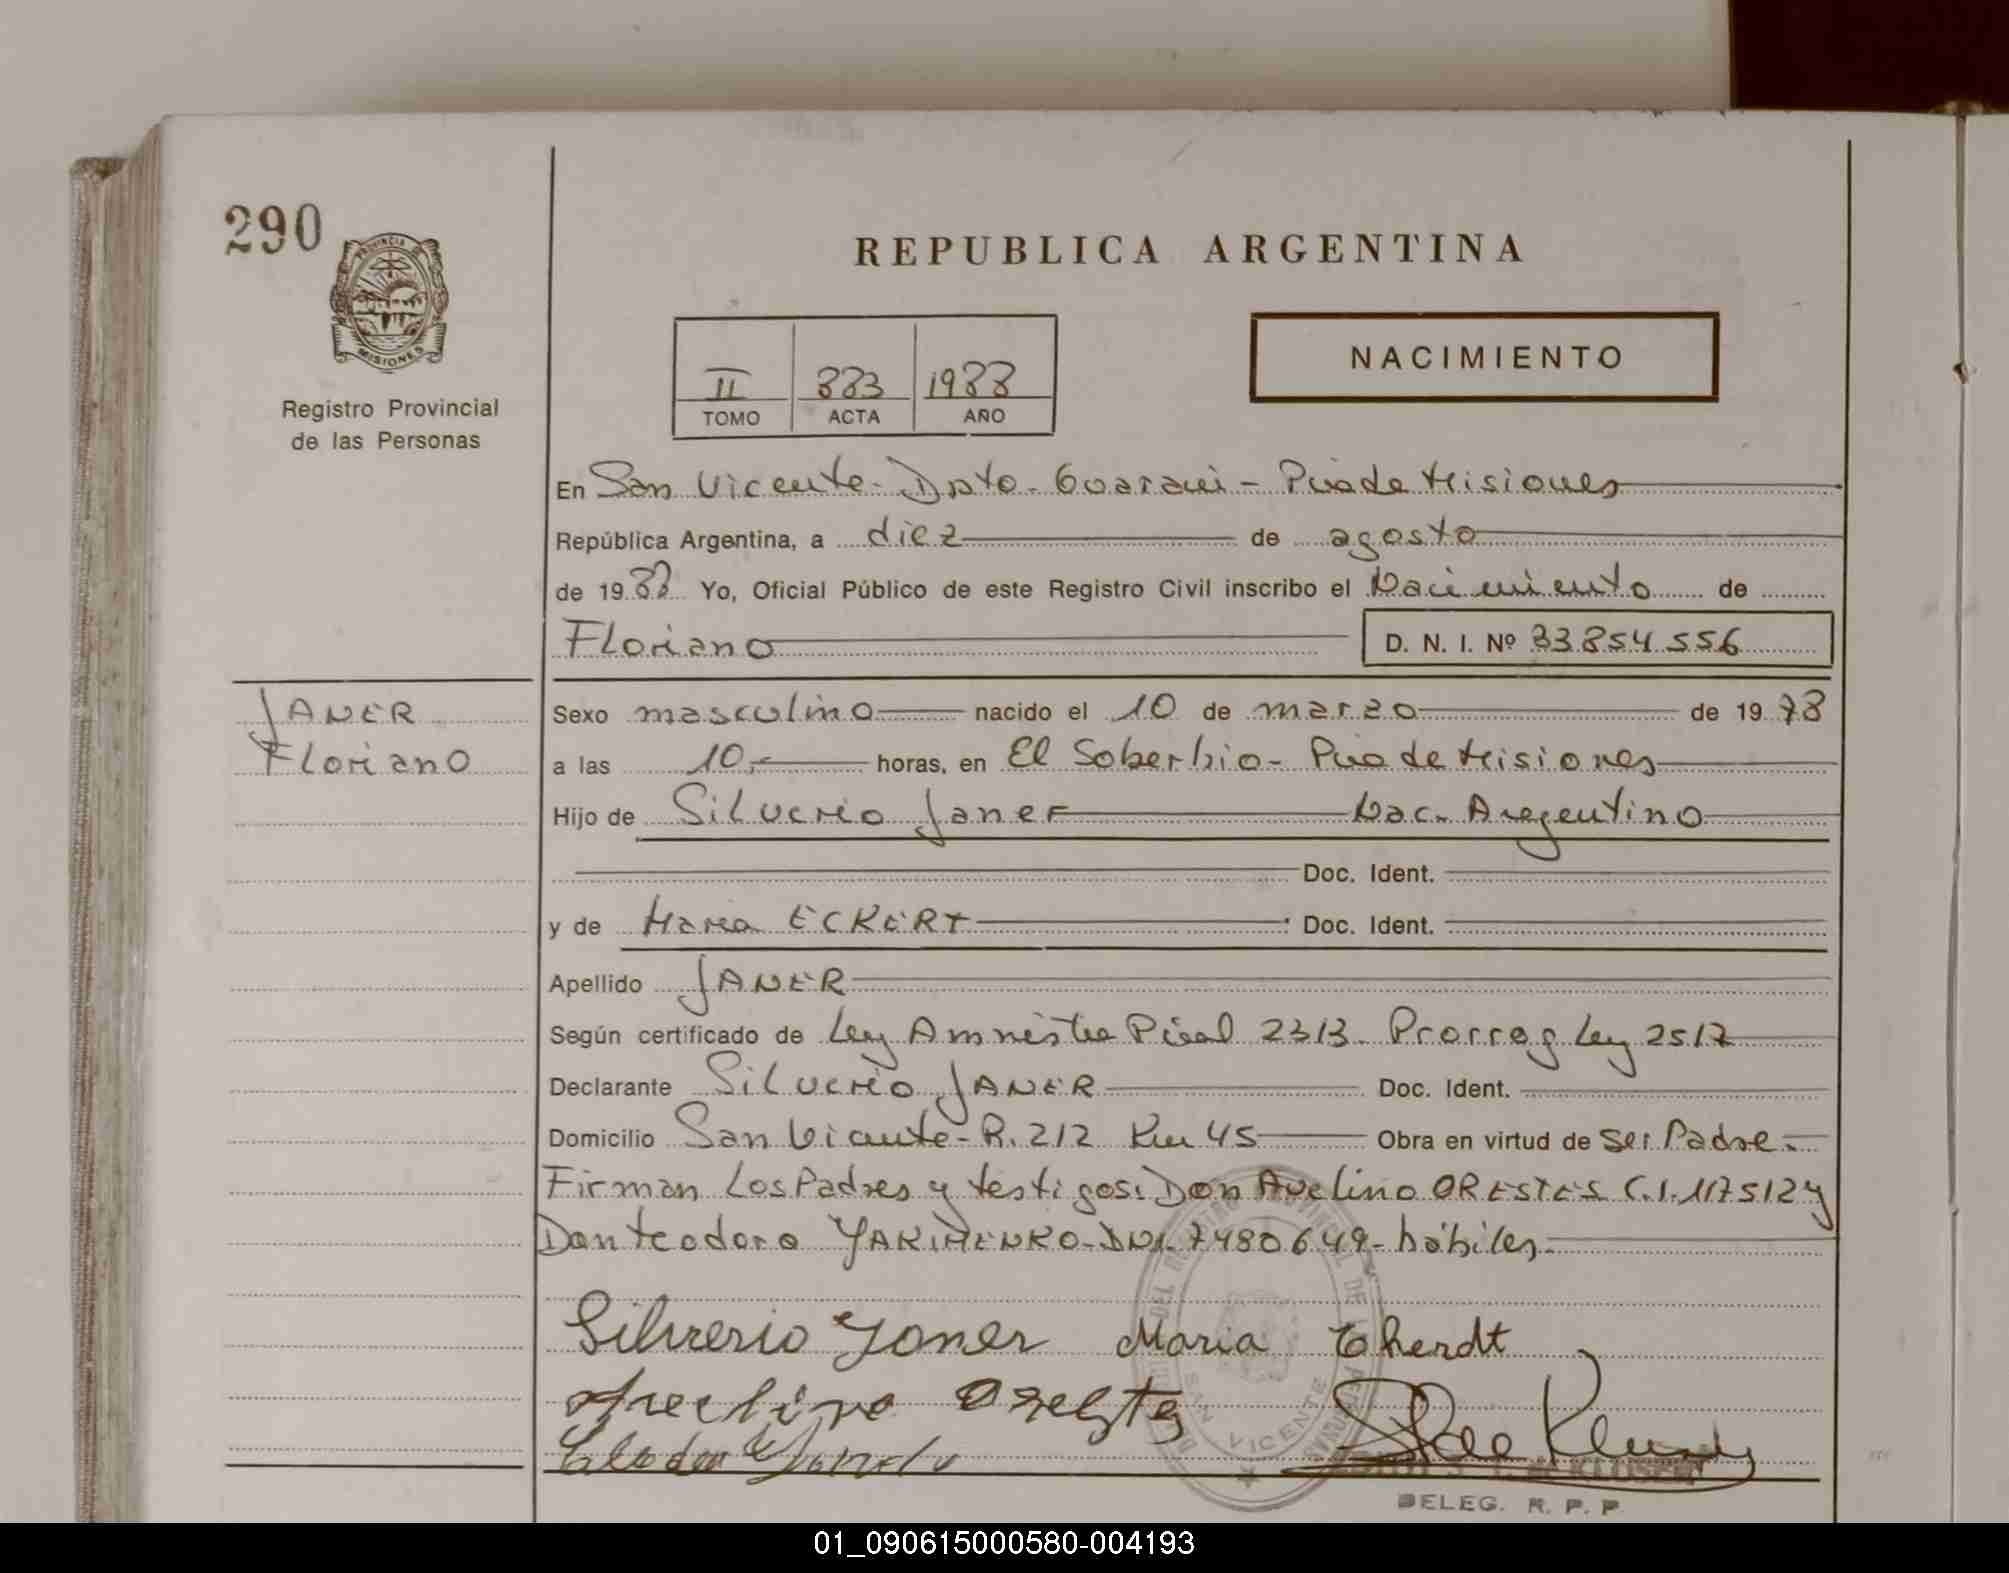 290
PROVINCIA
MISIONES
Registro Provincial
de las Personas
REPUBLICA ARGENTINA
II 883 1988
TOMO ACTA AÑO
NACIMIENTO
En San Vicente - Dpto. Guaraní - Pcia de Misiones
República Argentina, a diez de agosto
de 1988 Yo, Oficial Público de este Registro Civil inscribo el Nacimiento de
Floriano D. N. I. Nº 33.854.556
JANER
Floriano
Sexo masculino nacido el 10 de marzo de 1978
a las 10,- horas, en El Soberbio - Pcia de Misiones
Hijo de Silverio Janer Nac. Aregentino
Doc. Ident.
y de Maria ECKERT Doc. Ident.
Apellido JANER
Según certificado de Ley Amnistia Pcial 2313. Prorrog Ley 2517
Declarante Silverio JANER Doc. Ident.
Domicilio San Vicente - R. 212 Km 45 Obra en virtud de ser Padre.-
Firman Los Padres y testigos: Don Avelino ORESTES C.I. 117512 y
Don teodoro YARIMENKO - DNI. 7480649 - hábiles.
Silverio Janer Maria Eherdt
SAN VICENTE
DELEG. R. P. P.
01_090615000580-004193